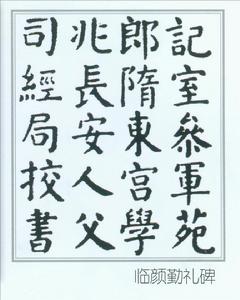 記室參軍苑
郎隋東宮學
兆長安人父
司經局挍書
临颜勤礼碑